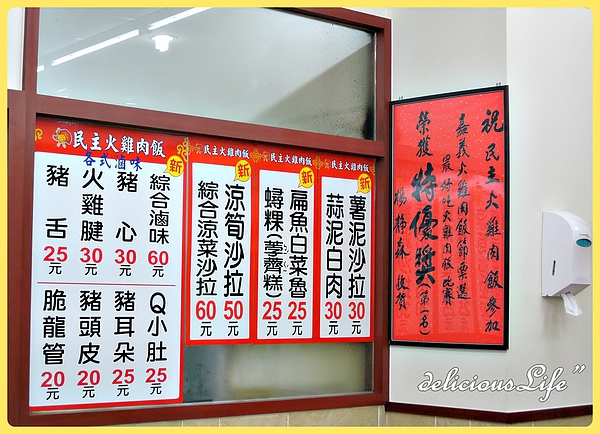 民主火雞肉飯
各式滷味
新
綜合滷味 60元
豬心 30元
火雞腱 30元
豬舌 25元
Q小肚 25元
豬耳朵 25元
豬頭皮 20元
脆龍管 20元
民主火雞肉飯
新
涼筍沙拉 50元
綜合涼菜沙拉 60元
民主火雞肉飯
新
扁魚白菜魯 25元
蟳粿(荸薺糕) 25元
民主火雞肉飯
新
薯泥沙拉 30元
蒜泥白肉 30元
祝民主火雞肉飯參加
嘉義火雞肉飯節票選
最好吃火雞肉飯比賽
榮獲特優獎(第一名)
敬賀
deliciousLife"